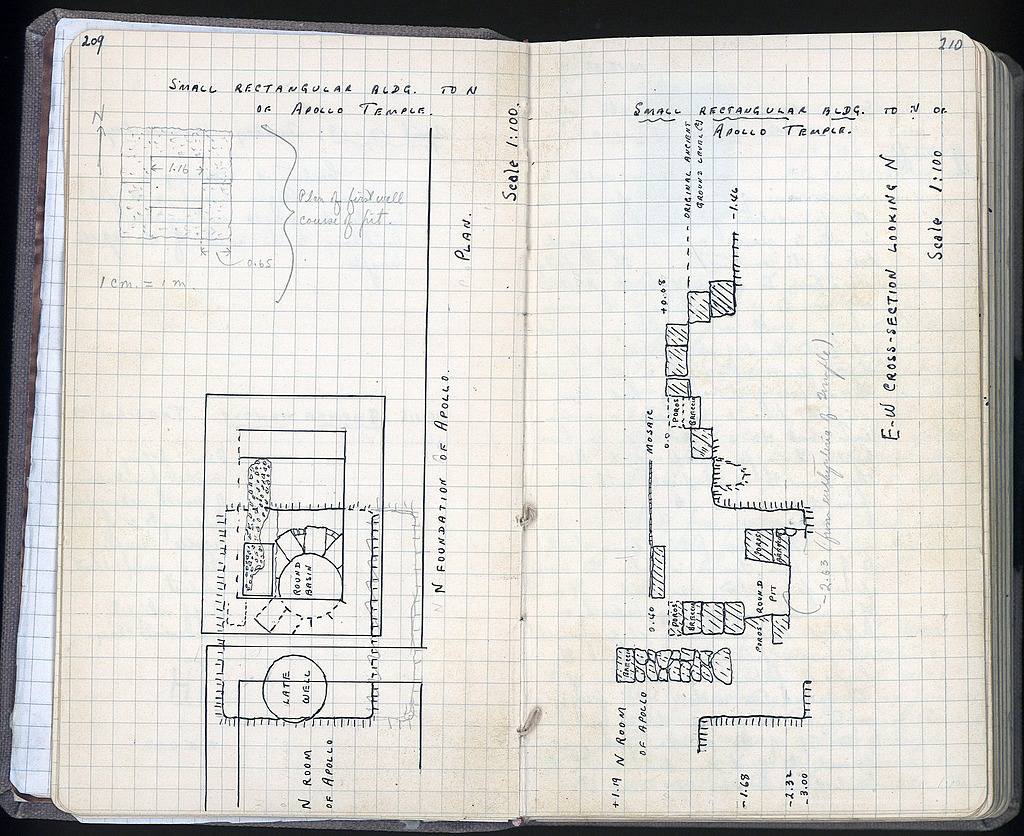 209
SMALL RECTANGULAR BLDG. TO N
OF APOLLO TEMPLE.
N
1.16
Plan of first wall
course of pit.
0.65
1 cm. = 1 m.
Scale 1:100.
PLAN.
N FOUNDATION OF APOLLO.
ROUND
BASIN
LATE
WELL
N ROOM
OF APOLLO
210
SMALL RECTANGULAR BLDG. TO N OF
APOLLO TEMPLE.
ORIGINAL ANCIENT
GROUND LEVEL(?)
-1.46
+0.08
E-W CROSS-SECTION LOOKING N
Scale 1:100
POROS
BRECCIA
0.0
MOSAIC
-2.63 (from euthynteria of temple).
0.40
POROS
BRECCIA
POROS
BRECCIA
ROUND
PIT
POROS
BRECCIA
N ROOM
OF APOLLO
+1.19
-1.68
-2.32
-3.00